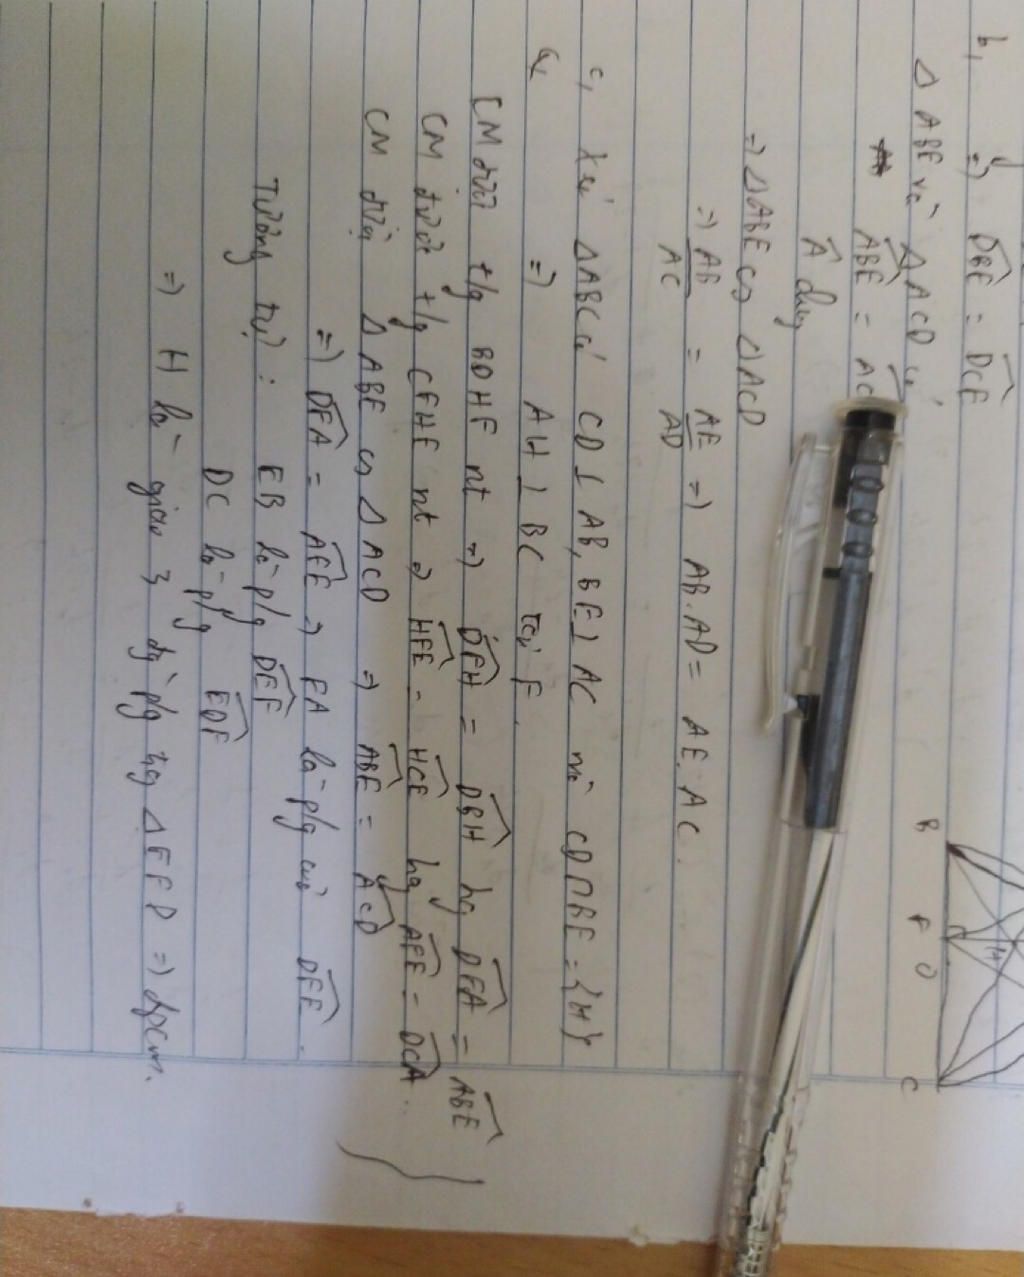 b, => DBE = DCE
Δ ABE và Δ ACD có
ABE = AC
A chung
=> Δ ABE ∽ Δ ACD
=> AB/AC = AE/AD => AB.AD = AE.AC.
c, Xét Δ ABC có CD ⊥ AB, BE ⊥ AC mà CD ∩ BE = {H}
=> AH ⊥ BC tại F.
CM được t/g BDHF nt => DFH = DBH hay DFA = ABE
CM được t/g CEHF nt => HFE = HCE hay AFE = DCA.
CM được Δ ABE ∽ Δ ACD => ABE = ACD
=> DFA = AFE => FA là p/g của DFE.
Tương tự: EB là p/g DEF
DC là p/g EDF
=> H là giao 3 đg p/g Δ EFD => đpcm.
B
F
O
C
H